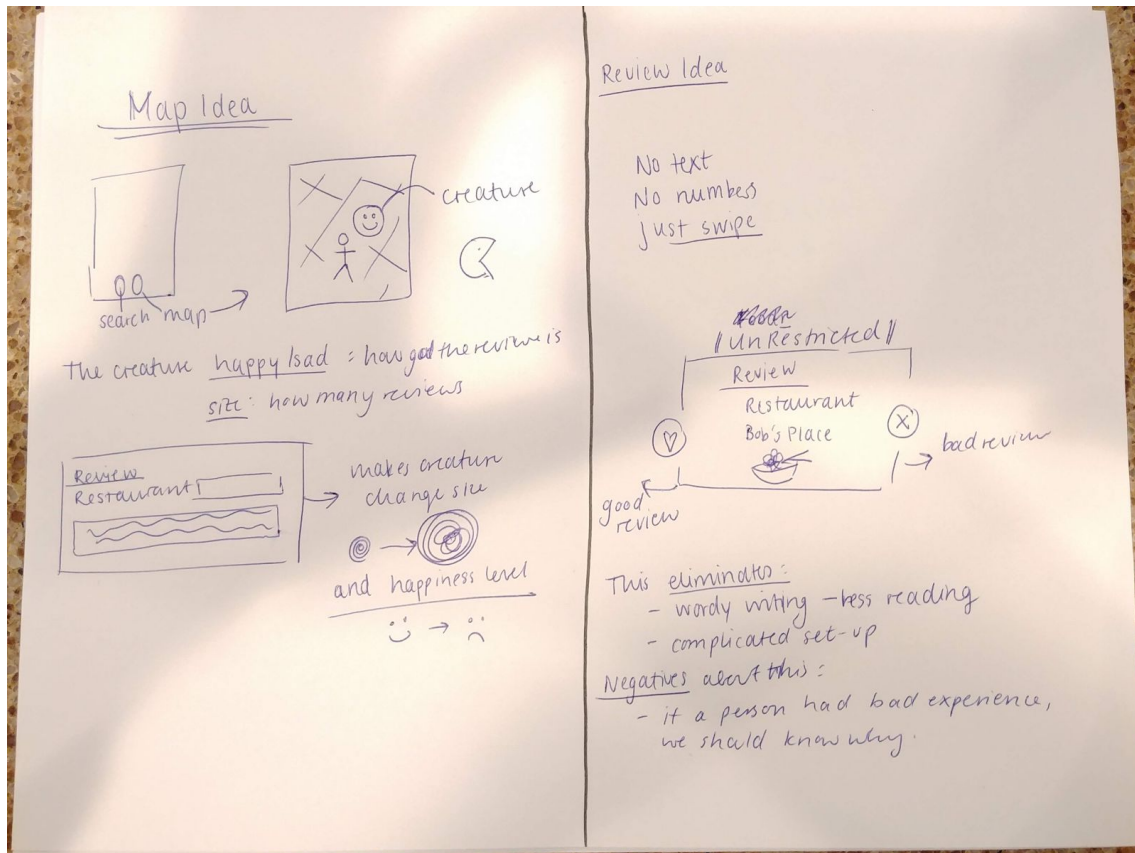 Map Idea
creature
search map
The creature happy/sad : how good the review is
size: how many reviews
Review
Restaurant
makes creature
change size
and happiness level
Review Idea
No text
No numbers
just swipe
"UnRestricted"
Review
Restaurant
Bob's Place
bad review
good
review
This eliminates:
- wordy writing - less reading
- complicated set-up
Negatives about this:
- if a person had bad experience,
we should know why.